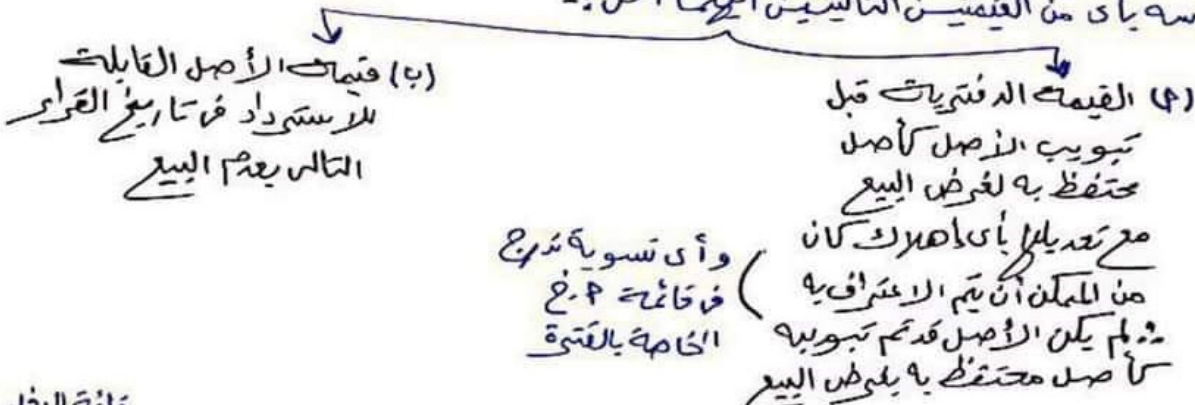 بأى من القيمتين التاليتين أيهما أقل
(أ) القيمة الدفترية قبل
تبويب الأصل كأصل
محتفظ به لغرض البيع
مع تعديلها بأى إهلاك كان
من الممكن أن يتم الاعتراف به
لم يكن الأصل قد تم تبويبه
كأصل محتفظ به بغرض البيع
وأى تسوية تدرج
فى قائمة أ.خ
الخاصة بالفترة
(ب) قيمة الأصل القابلة
للاسترداد فى تاريخ القرار
التالى بعدم البيع